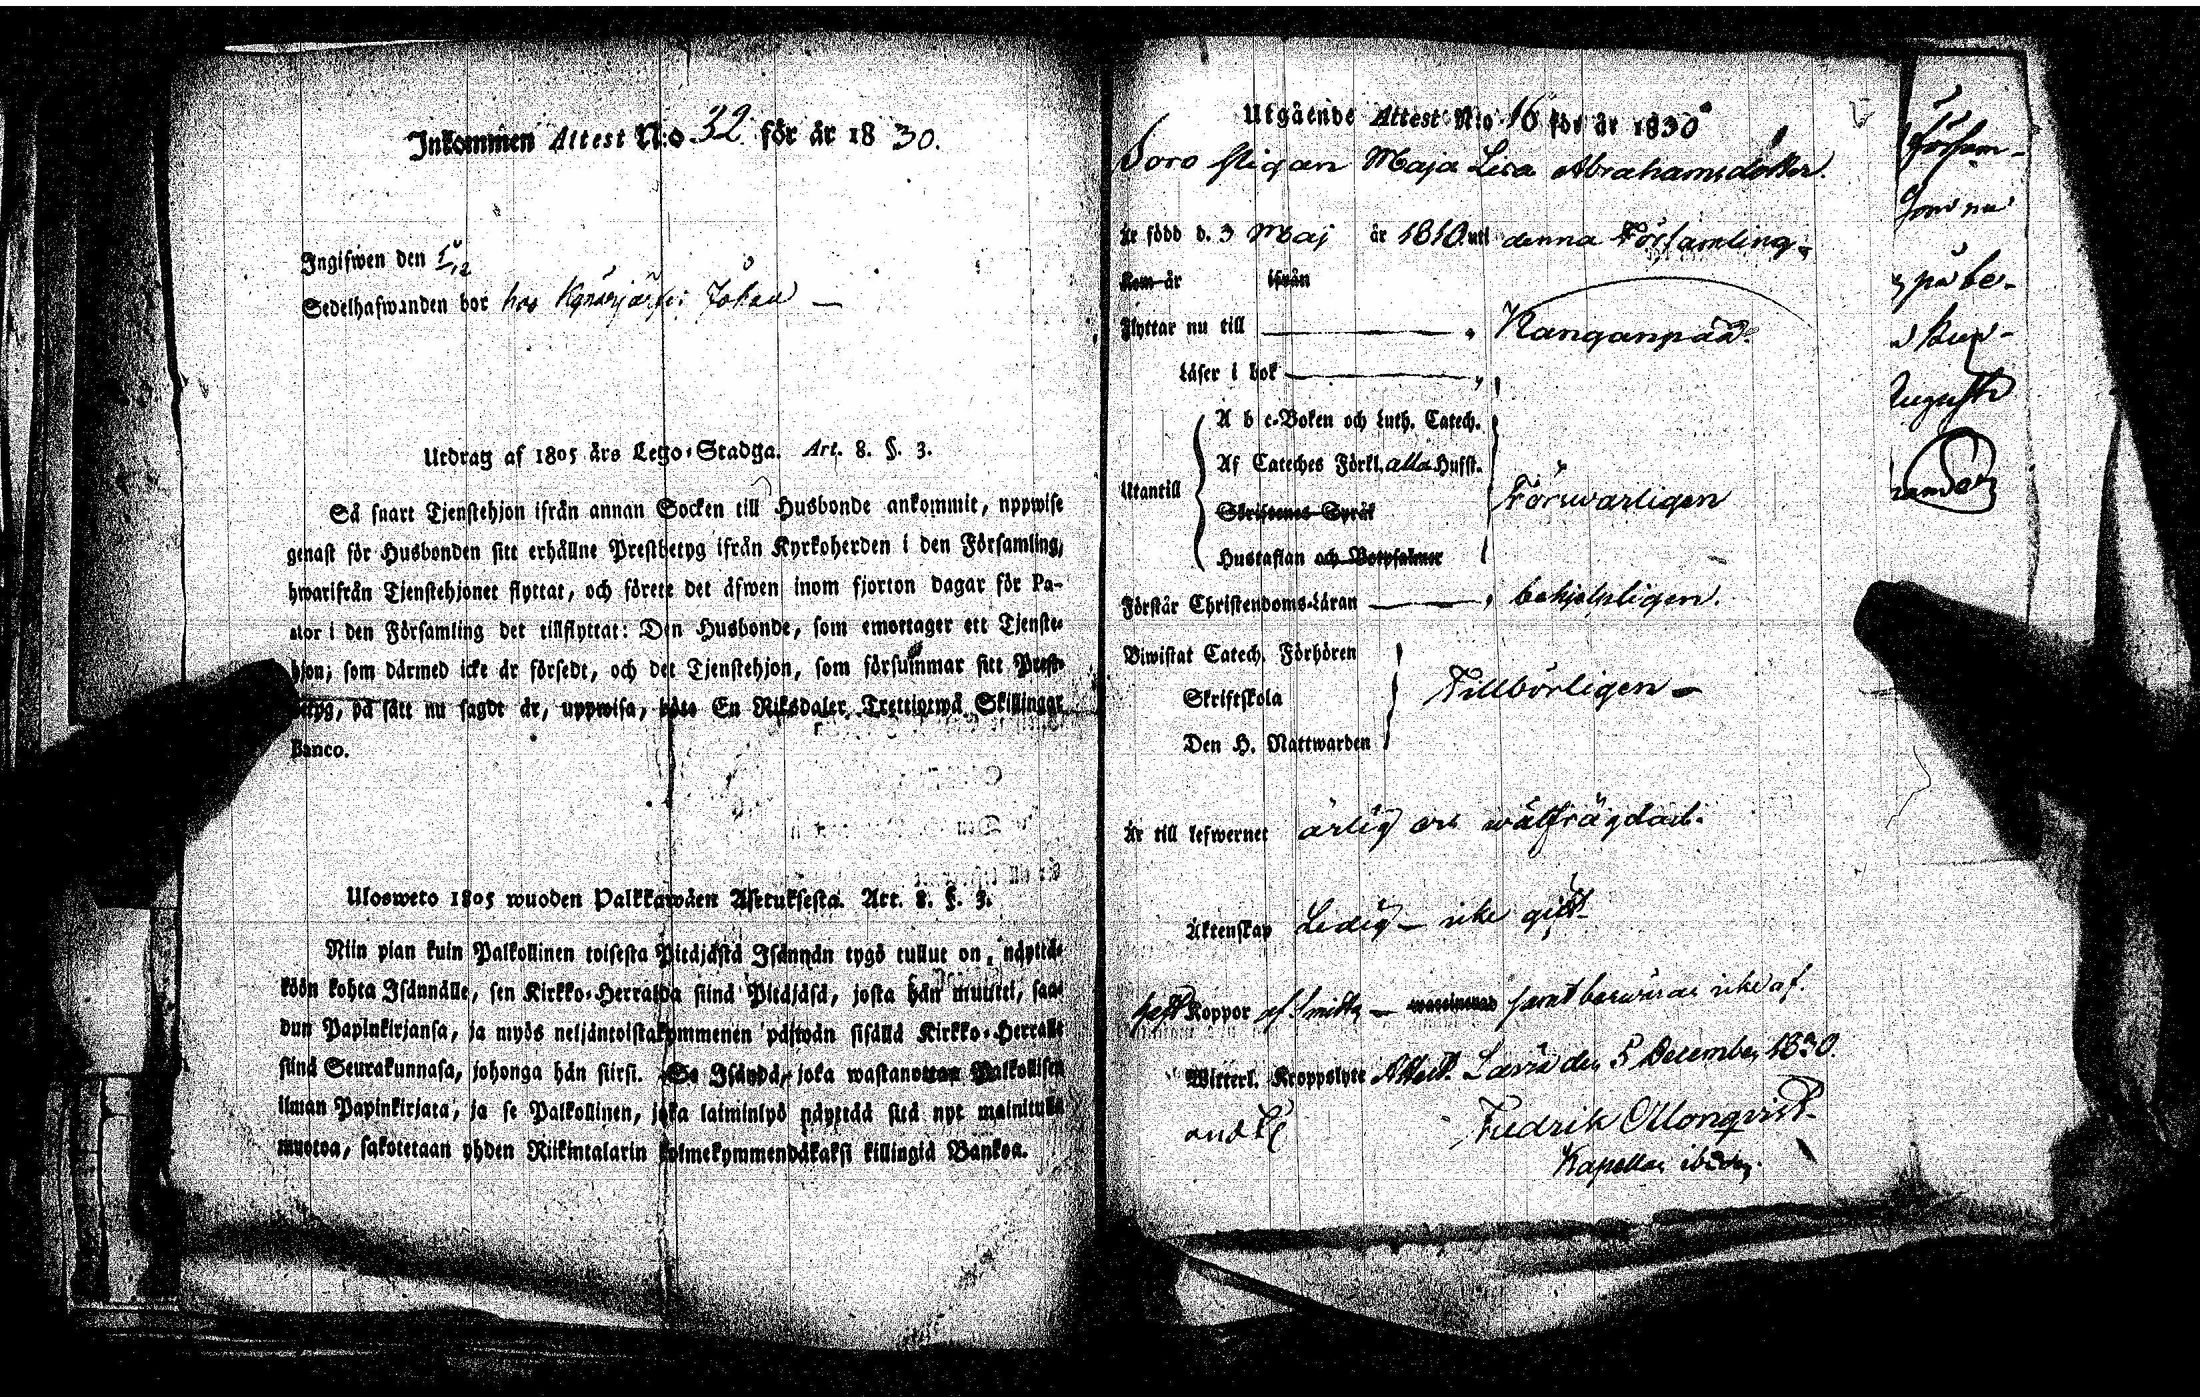 Inkommen Attest N:o 32 för år 18 30.
Ingifwen den 5/12
Sedelhafwanden bor hos
Utdrag af 1805 års Lego-Stadga. Art. 8. §. 3.
Så snart Tjenstehjon ifrån annan Socken till Husbonde ankommit, uppwise
genast för Husbonden sitt erhållne Prestbetyg ifrån Kyrkoherden i den Församling,
hwarifrån Tjenstehjonet flyttat, och förete det äfwen inom fjorton dagar för Pa-
stor i den Församling det tillflyttat: Den Husbonde, som emottager ett Tjenste-
hjon; som därmed icke är försedt, och det Tjenstehjon, som försummar sitt Prest-
betyg, på sätt nu sagdt är, uppwisa, böte En Riksdaler Trettiotwå Skillingar
Banco.
Ulosweto 1805 wuoden Palkkawäen Asetuksesta. Art. 8. §. 3.
Niin pian kuin Palkollinen toisesta Pitäjästä Isännän tygö tullut on, näyttä-
köön kohta Isännälle, sen Kirkko-Herralda siinä Pitäjäsä, josta hän muutti, saa-
dun Papinkirjansa, ja myös neljäntoistakymmenen päiwän sisällä Kirkko-Herralle
siinä Seurakunnasa, johonga hän siirsi. Se Isändä, joka wastanottaa Palkollisen
ilman Papinkirjata, ja se Palkollinen, joka laiminlyö näyttää sitä nyt mainitulla
muotoa, sakotetaan yhden Riikintalarin kolmekymmendäkaksi killingiä Bankoa.
Utgående Attest N:o 16 för år 1830
Maja Lisa Abrahamsdotter.
är född d. 3 Maj år 1810. uti denna Församling,
Kom år ifrån
Flyttar nu till Kanganpää.
Läser i bok
A b c-Boken och Luth. Catech.
Af Cateches Förkl. alla Husst.
Utantill Skriftenes Språk Försvarligen
Hustaflan och Botpsalmer
Förstår Christendoms-Läran behjelpligen.
Biwistat Catech. Förhören
Skriftskola Tillbörligen
Den H. Nattwarden
Är till lefwernet ärlig och wälfrägdad.
Äktenskap Ledig icke gift
haft Koppor af Smitta samt besväras icke af
Witterl. Kroppslyte Attest. Lavia den 5 December 1830.
Fredrik
Kapellan ibidem.
Församl-
på be-
Augusti